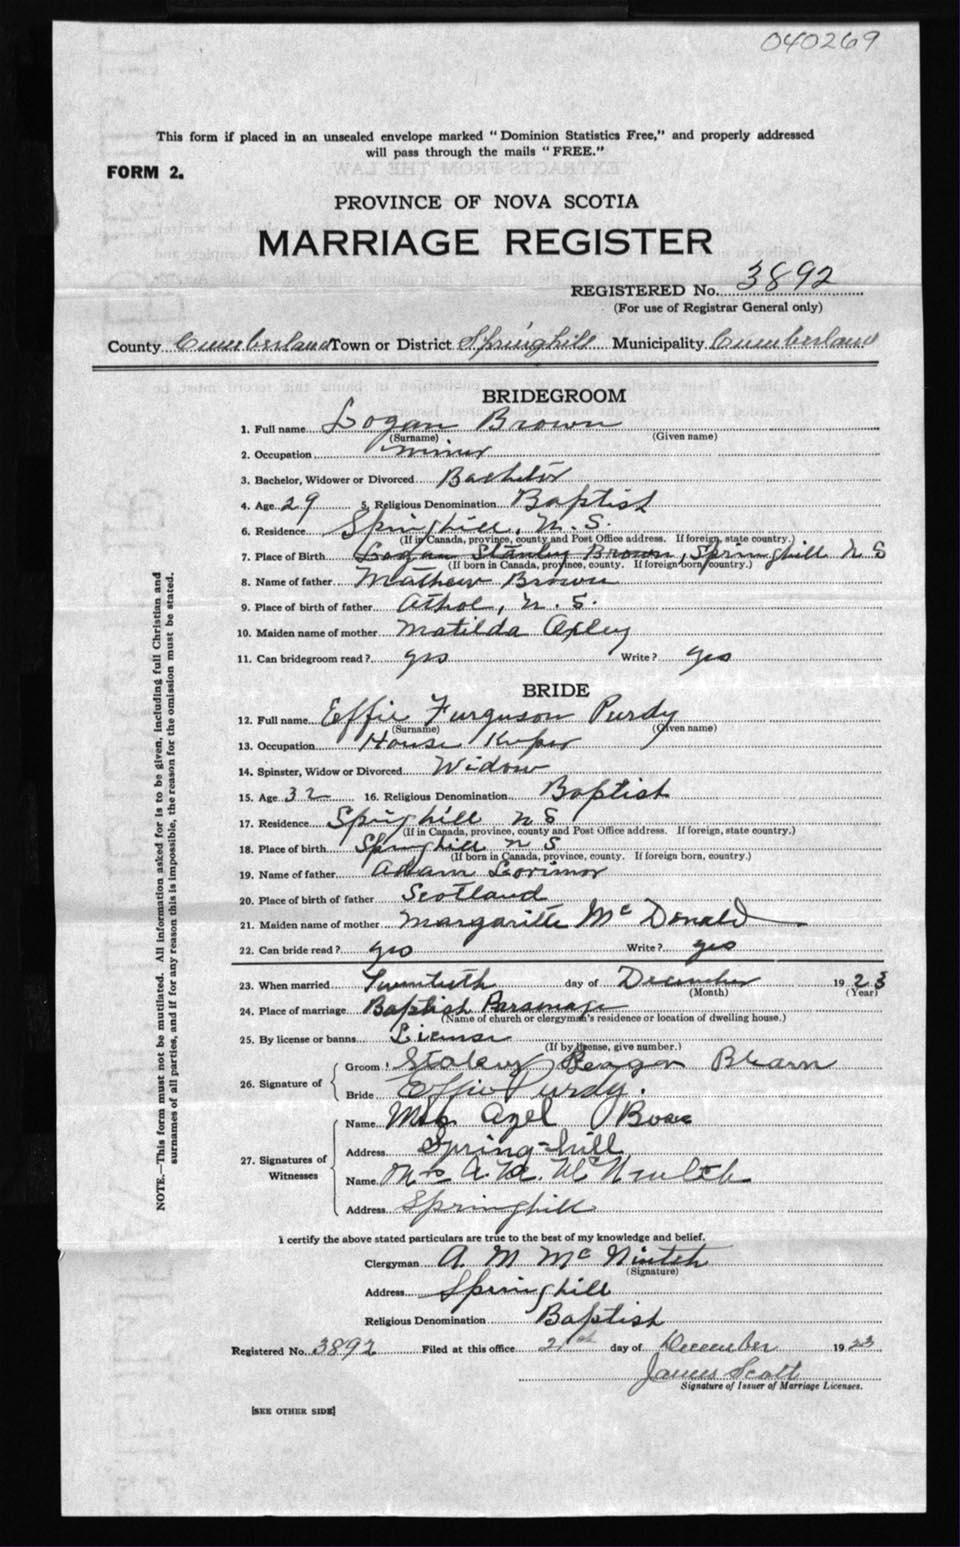 040269
This form if placed in an unsealed envelope marked "Dominion Statistics Free," and properly addressed
will pass through the mails "FREE."
FORM 2.
PROVINCE OF NOVA SCOTIA
MARRIAGE REGISTER
REGISTERED No. 3892
(For use of Registrar General only)
County Cumberland Town or District Springhill Municipality Cumberland
BRIDEGROOM
1. Full name Logan Brown
(Surname) (Given name)
2. Occupation miner
3. Bachelor, Widower or Divorced Bachelor
4. Age 29 5. Religious Denomination Baptist
6. Residence Springhill, N.S.
(If in Canada, province, county and Post Office address. If foreign, state country.)
7. Place of Birth Logan Stanley Brown, Springhill N S
(If born in Canada, province, county. If foreign born, country.)
8. Name of father Mathew Brown
9. Place of birth of father Athol, N.S.
10. Maiden name of mother Matilda Oxley
11. Can bridegroom read? yes Write? yes
BRIDE
12. Full name Effie Furguson Purdy
(Surname) (Given name)
13. Occupation House Keeper
14. Spinster, Widow or Divorced Widow
15. Age 32 16. Religious Denomination Baptist
17. Residence Springhill N S
(If in Canada, province, county and Post Office address. If foreign, state country.)
18. Place of birth Springhill N S
(If born in Canada, province, county. If foreign born, country.)
19. Name of father Adam Lorimor
20. Place of birth of father Scotland
21. Maiden name of mother Margaritte McDonald
22. Can bride read? yes Write? yes
23. When married Twentieth day of December 1923
(Month) (Year)
24. Place of marriage Baptist Parsonage
(Name of church or clergyman's residence or location of dwelling house.)
25. By license or banns License
(If by license, give number.)
26. Signature of
Groom Logan
Bride Effie Purdy.
27. Signatures of Witnesses
Name Mrs Azel
Address Spring-hill
Name Mrs A. M.
Address Springhill
I certify the above stated particulars are true to the best of my knowledge and belief.
Clergyman A. M McNintch
(Signature)
Address Springhill
Religious Denomination Baptist
Registered No. 3892 Filed at this office 21st day of December 1923
James Scott
Signature of Issuer of Marriage Licenses.
[SEE OTHER SIDE]
NOTE.—This form must not be mutilated. All information asked for is to be given, including full Christian and
surnames of all parties, and if for any reason this is impossible, the reason for the omission must be stated.